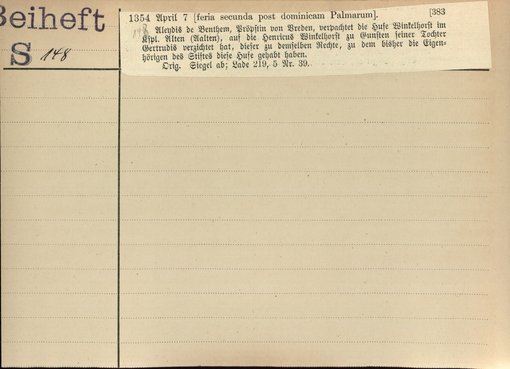 Beiheft
S 148
1354 April 7 [feria secunda post dominicam Palmarum]. [383
148
Aleydis de Benthem, Pröpstin von Vreden, verpachtet die Hufe Winkelhorst im
Kspl. Alten (Aalten), auf die Henricus Winkelhorst zu Gunsten seiner Tochter
Gertrudis verzichtet hat, dieser zu demselben Rechte, zu dem bisher die Eigen-
hörigen des Stiftes diese Hufe gehabt haben.
Orig. Siegel ab; Lade 219, 5 Nr. 39.